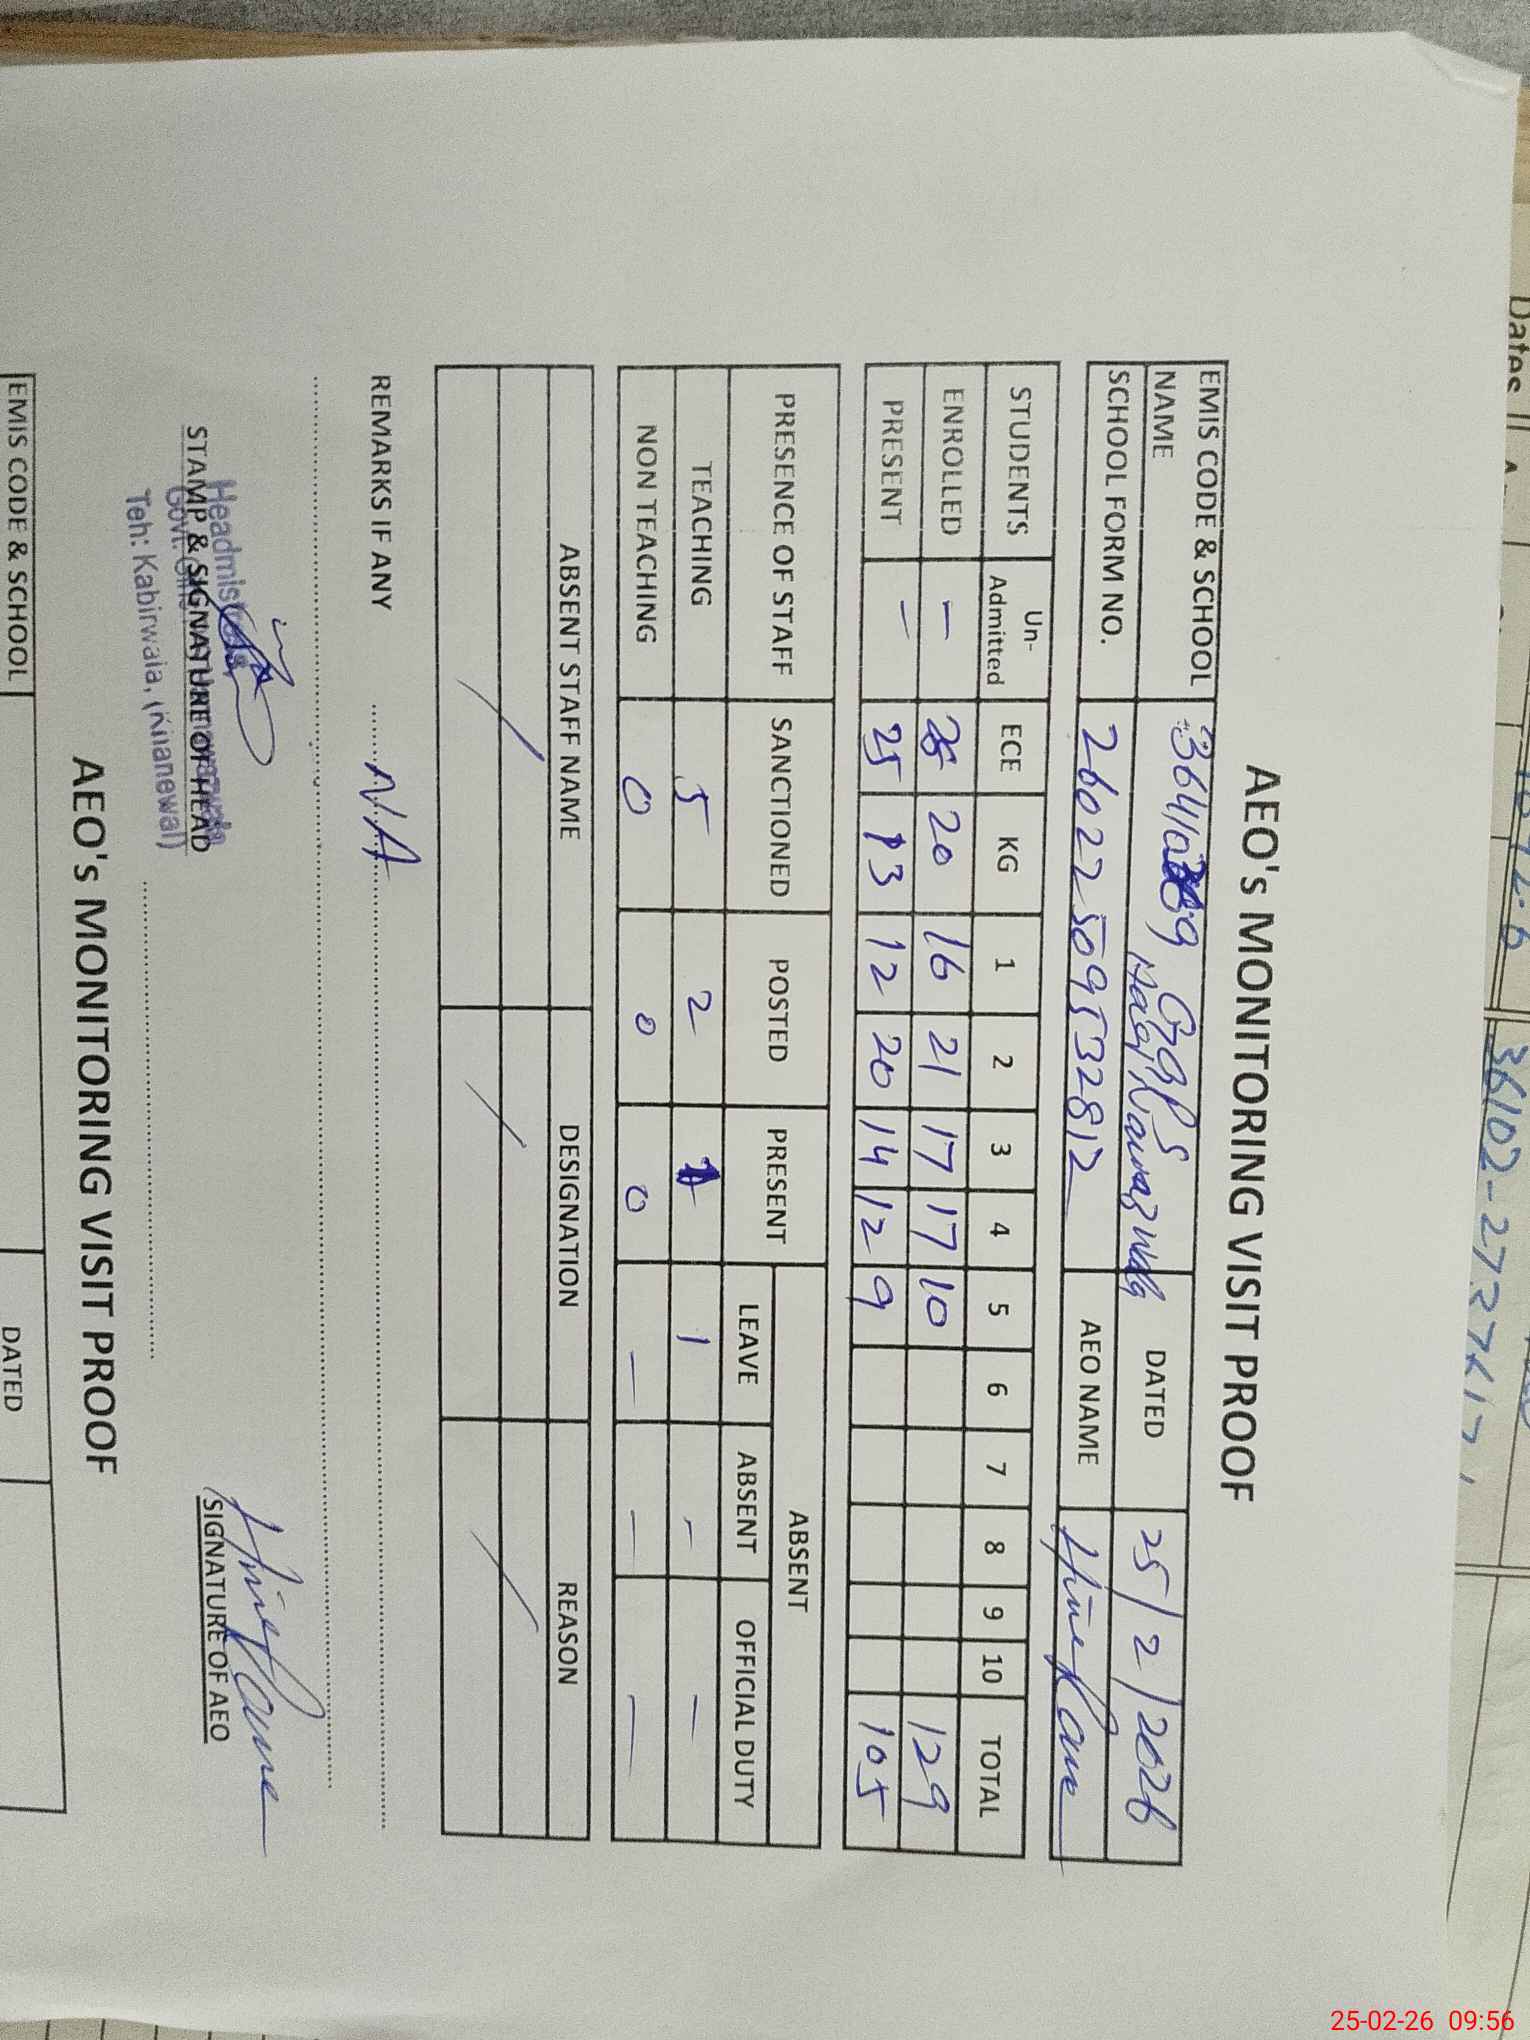 AEO's MONITORING VISIT PROOF
EMIS CODE & SCHOOL NAME GGPS Haqi Nawaz Wala DATED 25/2/2026
SCHOOL FORM NO. 26022509532812 AEO NAME
STUDENTS Un-Admitted ECE KG 1 2 3 4 5 6 7 8 9 10 TOTAL
ENROLLED — 28 20 16 21 17 17 10 129
PRESENT — 25 13 12 20 14 12 9 105
PRESENCE OF STAFF SANCTIONED POSTED PRESENT ABSENT
LEAVE ABSENT OFFICIAL DUTY
TEACHING 5 2 1 1 – —
NON TEACHING 0 0 0 — — —
ABSENT STAFF NAME DESIGNATION REASON
REMARKS IF ANY N.A
Headmistress
Govt. Girls
STAMP & SIGNATURE OF HEAD SIGNATURE OF AEO
Teh: Kabirwala, (Khanewal)
AEO's MONITORING VISIT PROOF
EMIS CODE & SCHOOL DATED
Dates
36102-2737617
25-02-26 09:56